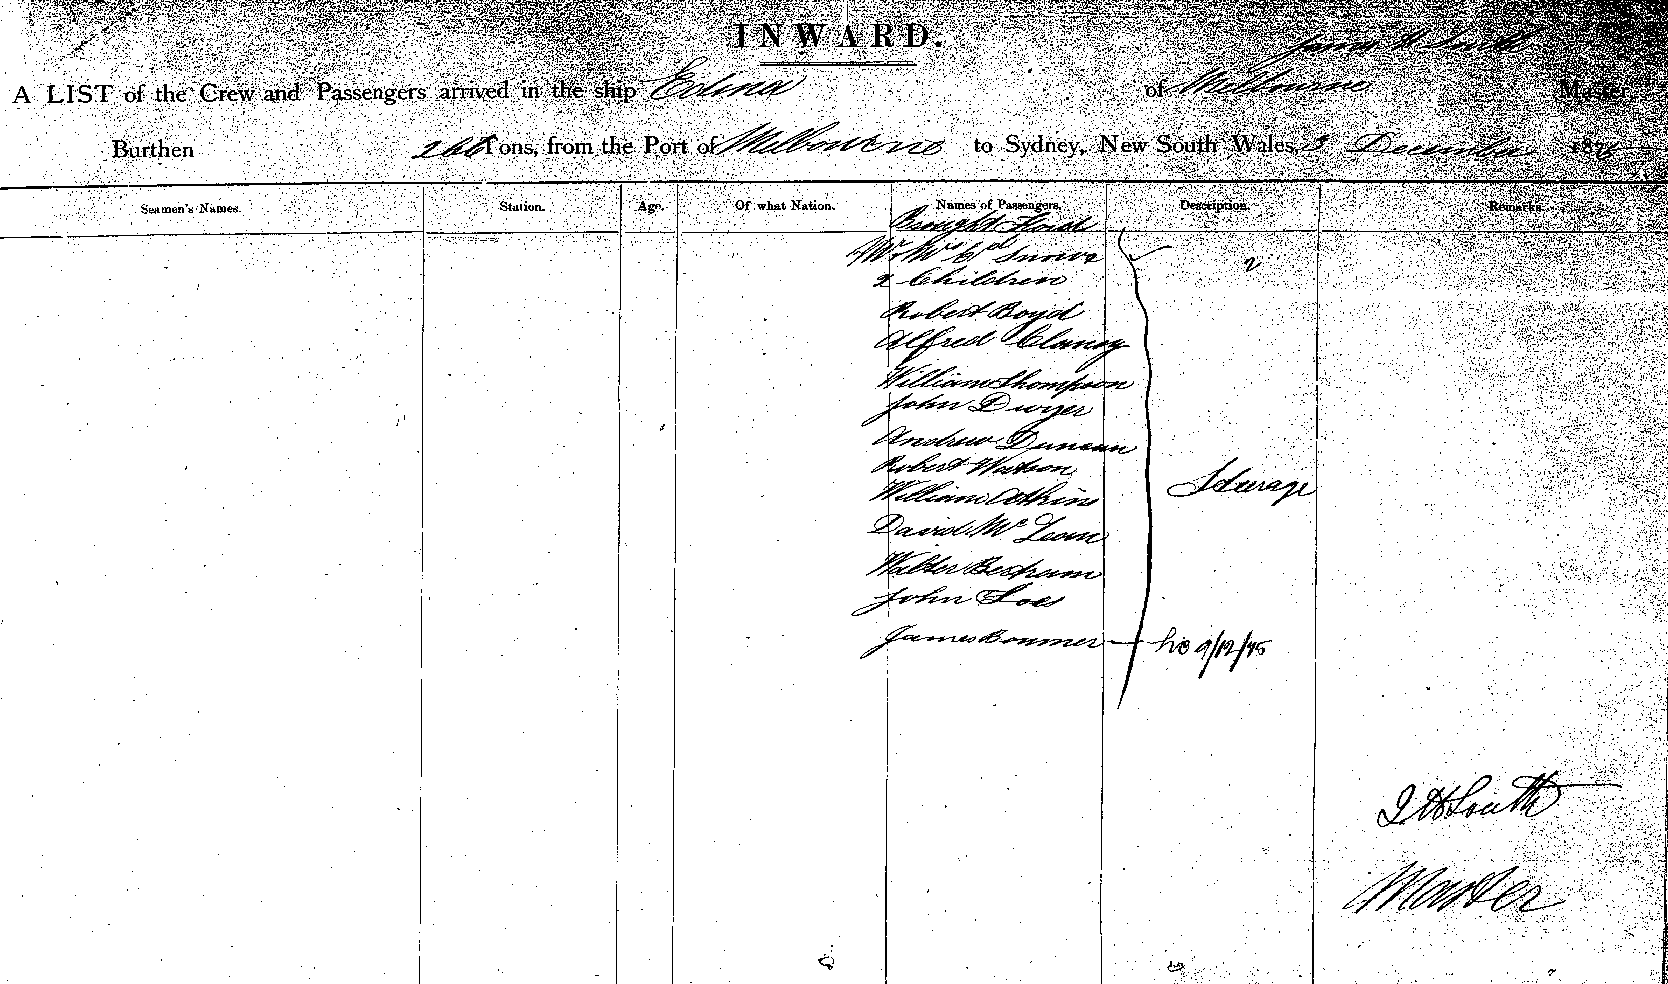 INWARD.
James H South
A LIST of the Crew and Passengers arrived in the ship Edina of Melbourne Master,
Burthen 266 Tons, from the Port of Melbourne to Sydney, New South Wales, 3 December 187
Seamen's Names. Station. Age. Of what Nation. Names of Passengers. Description. Remarks.
Brought Ford
Mr & Mrs
2 Children
2
Robert Boyd
Alfred Clancy
William Thompson
John Dwyer
Andrew Duncan
Robert Watson
Steerage
William Atkins
David McLean
Walter Bertram
John Foes
James Bonmer 9/12/75
J H South
Master